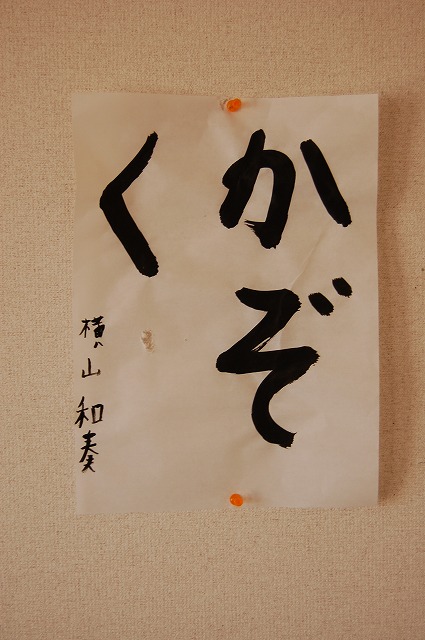 かぞ
く
横山和奏